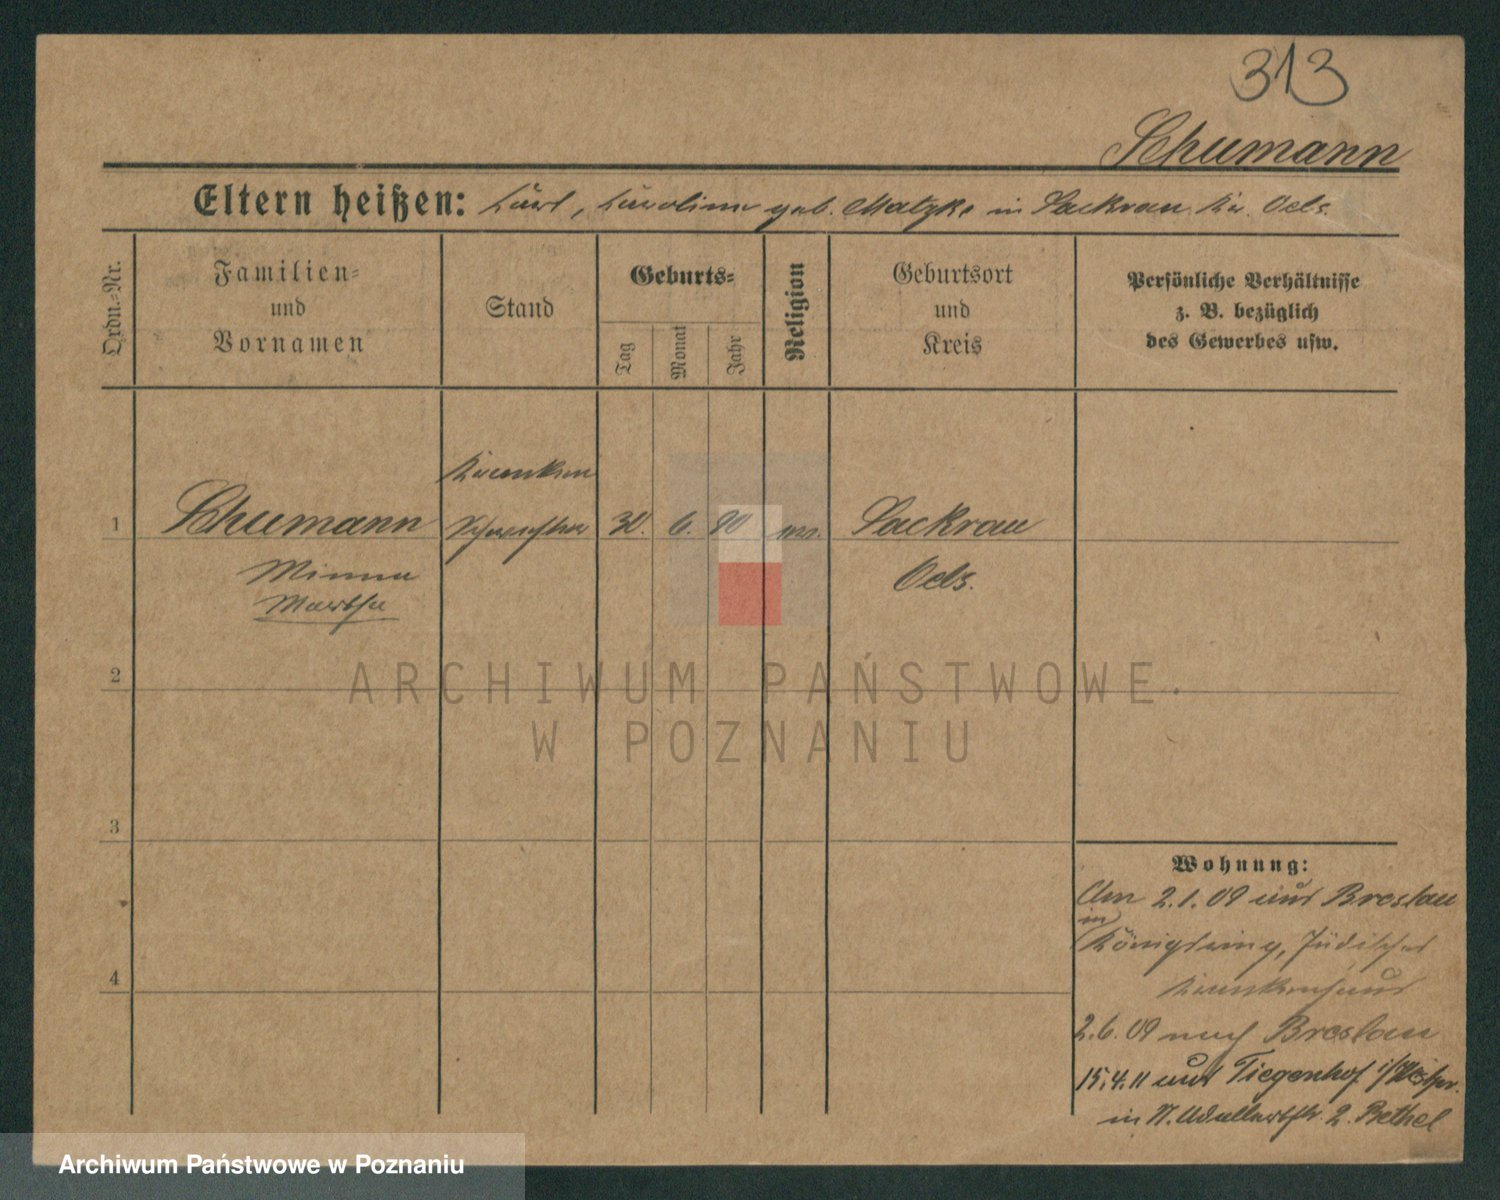 313
Schumann
Eltern heißen: Karl, Karoline geb. Matzke in Sackrau Kr. Oels.
Ordn.-Nr.
Familien-
und
Vornamen
Stand
Geburts-
Tag
Monat
Jahr
Religion
Geburtsort
und
Kreis
Persönliche Verhältnisse
z. B. bezüglich
des Gewerbes usw.
Kranken
1 Schumann schwester 30. 6. 80 Sackrau
Minna Oels.
Martha
2
3
4
Wohnung:
Am 2.1.09 aus Breslau
in
Königsring, Jüdisches
Krankenhaus
2.6.09 nach Breslau
15.4.11 aus Tiegenhof i/Westpr.
in N. Adalbertstr. 2. Bethel
ARCHIWUM PAŃSTWOWE
W POZNANIU
Archiwum Państwowe w Poznaniu